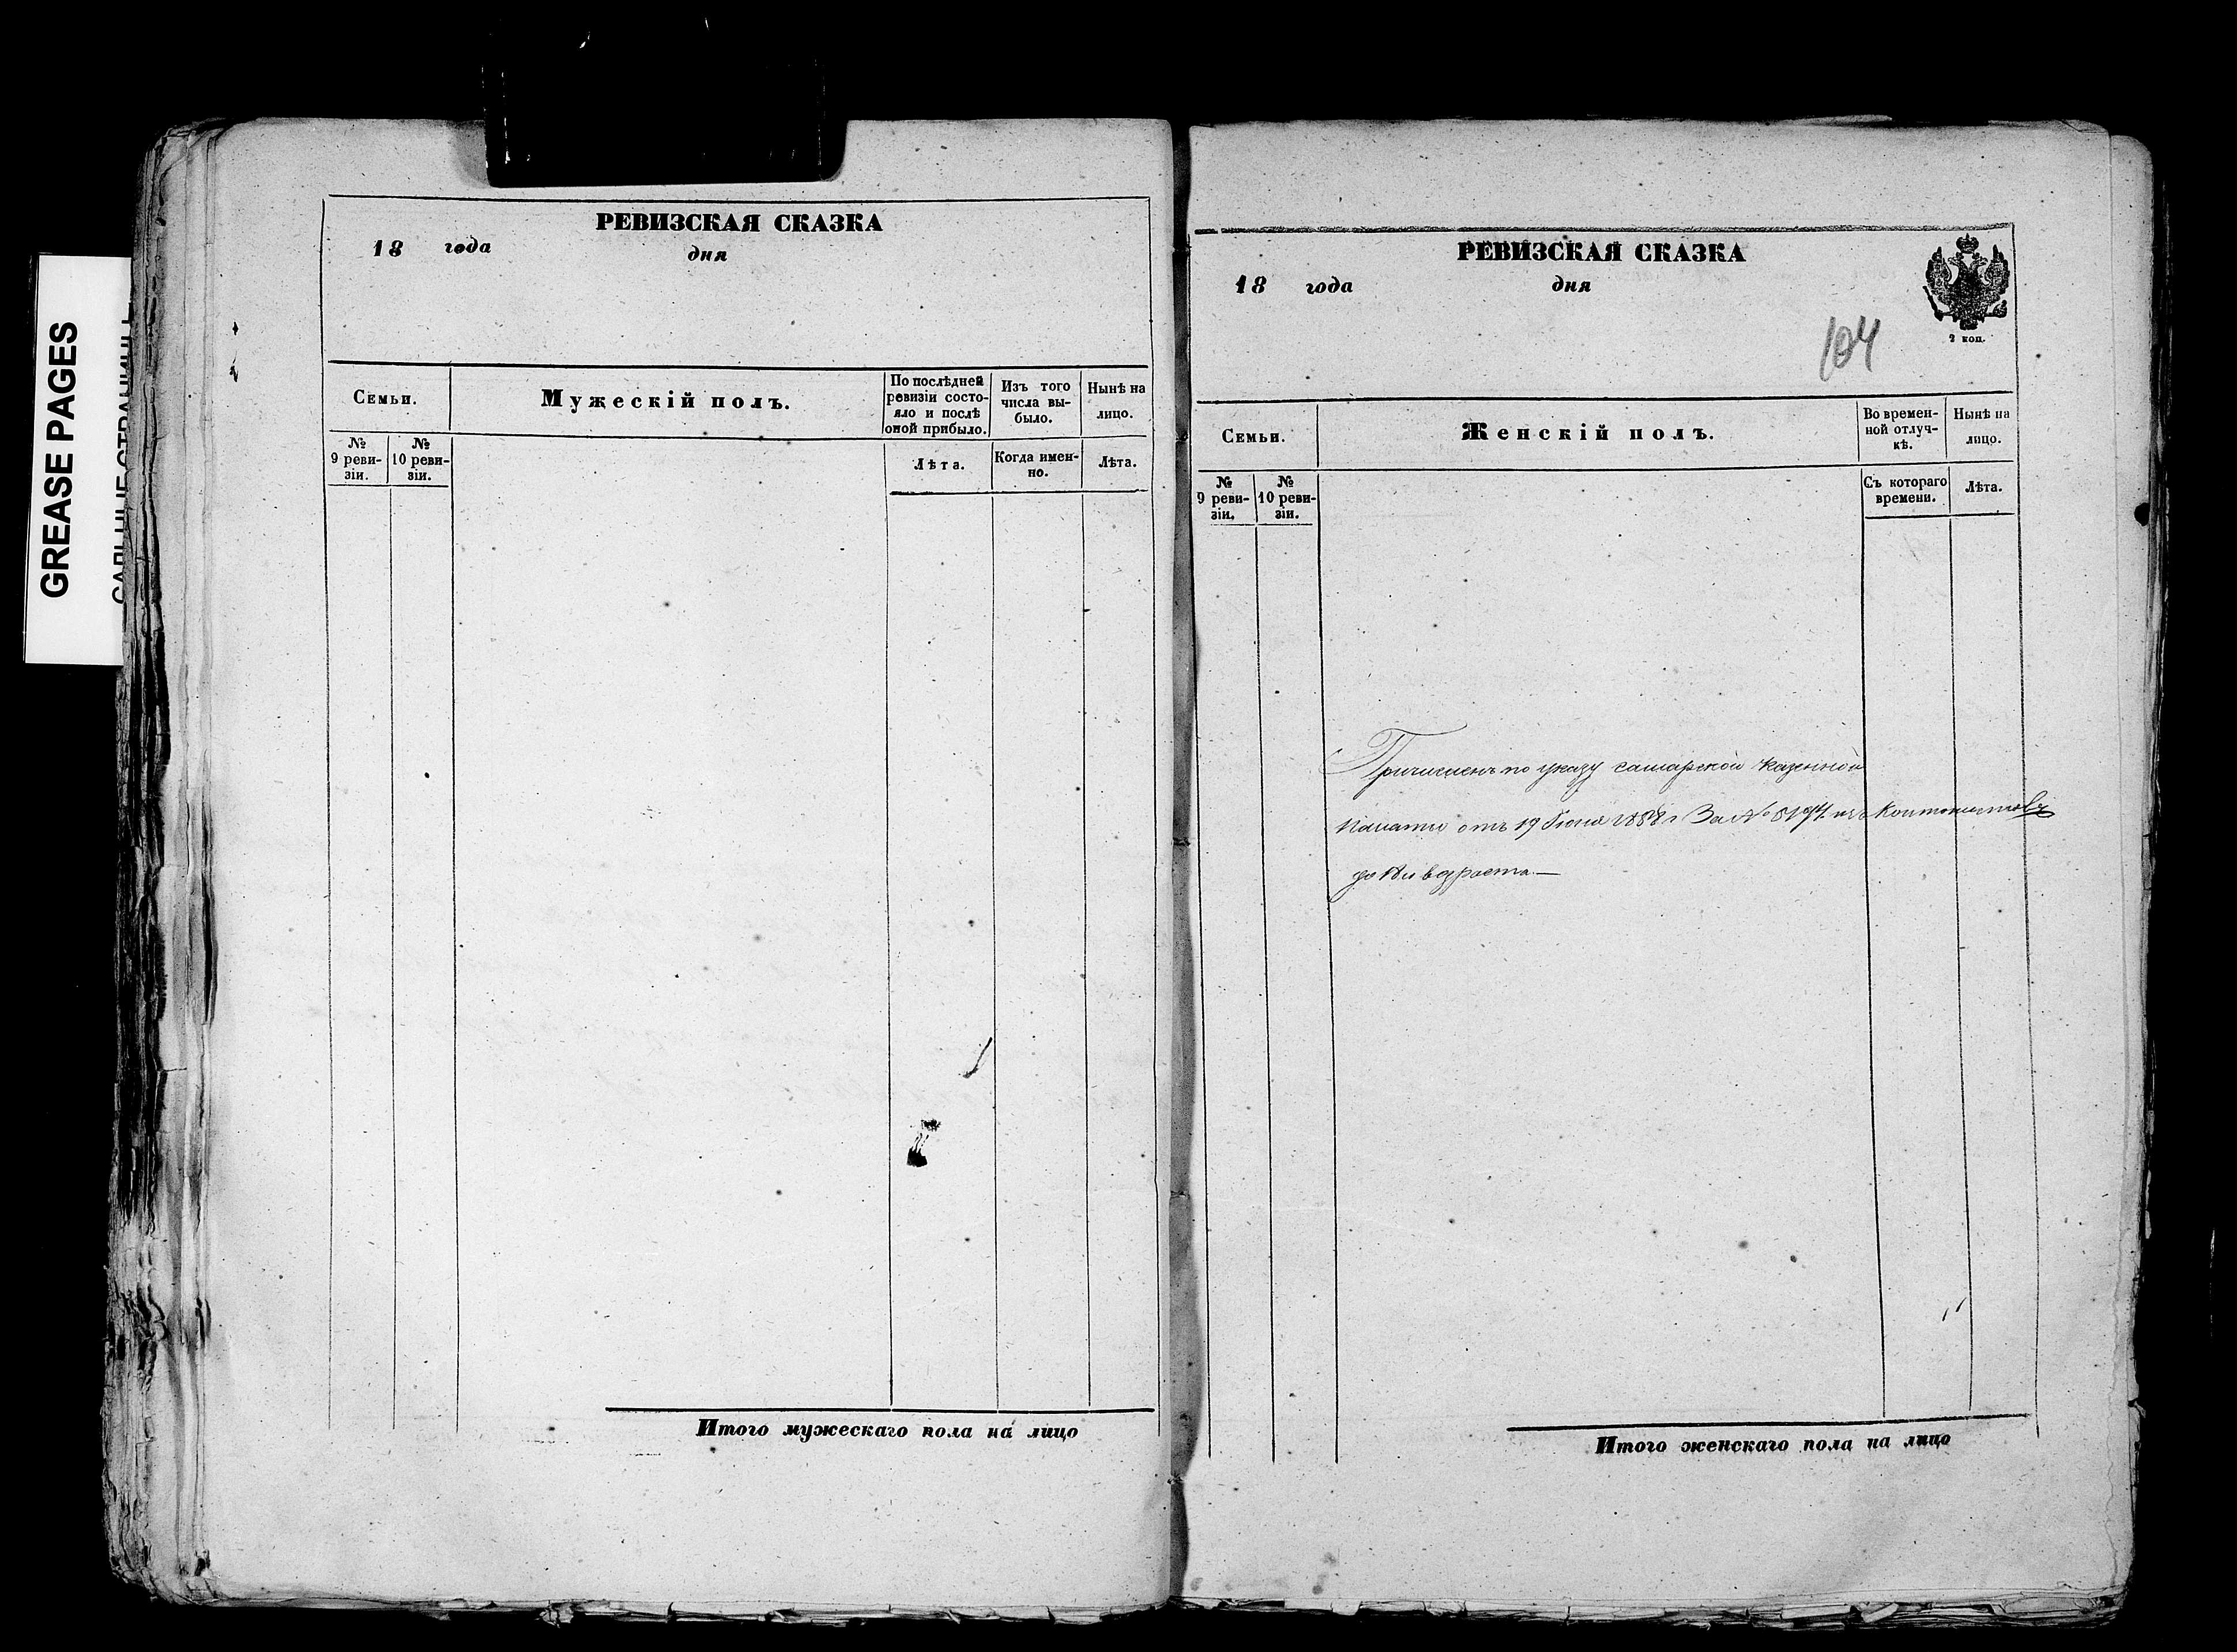 GREASE PAGES
РЕВИЗСКАЯ СКАЗКА
18 года дня
Семьи.
Мужескій полъ.
По послѣдней
ревизіи состо-
яло и послѣ
оной прибыло.
Изъ того
числа вы-
было.
Нынѣ на
лицо.
№
9 реви-
зіи.
№
10 реви-
зіи.
Лѣта.
Когда имен-
но.
Лѣта.
Итого мужескаго пола на лицо
РЕВИЗСКАЯ СКАЗКА
18 года дня
2 коп.
104
Семьи.
Женскій полъ.
Во времен-
ной отлуч-
кѣ.
Нынѣ на
лицо.
№
9 реви-
зіи.
№
10 реви-
зіи.
Съ котораго
времени.
Лѣта.
Причисленъ по указу самарской казенной
палаты отъ 19 Іюня 1858 г За № изъ кантонистовъ
Итого женскаго пола на лицо